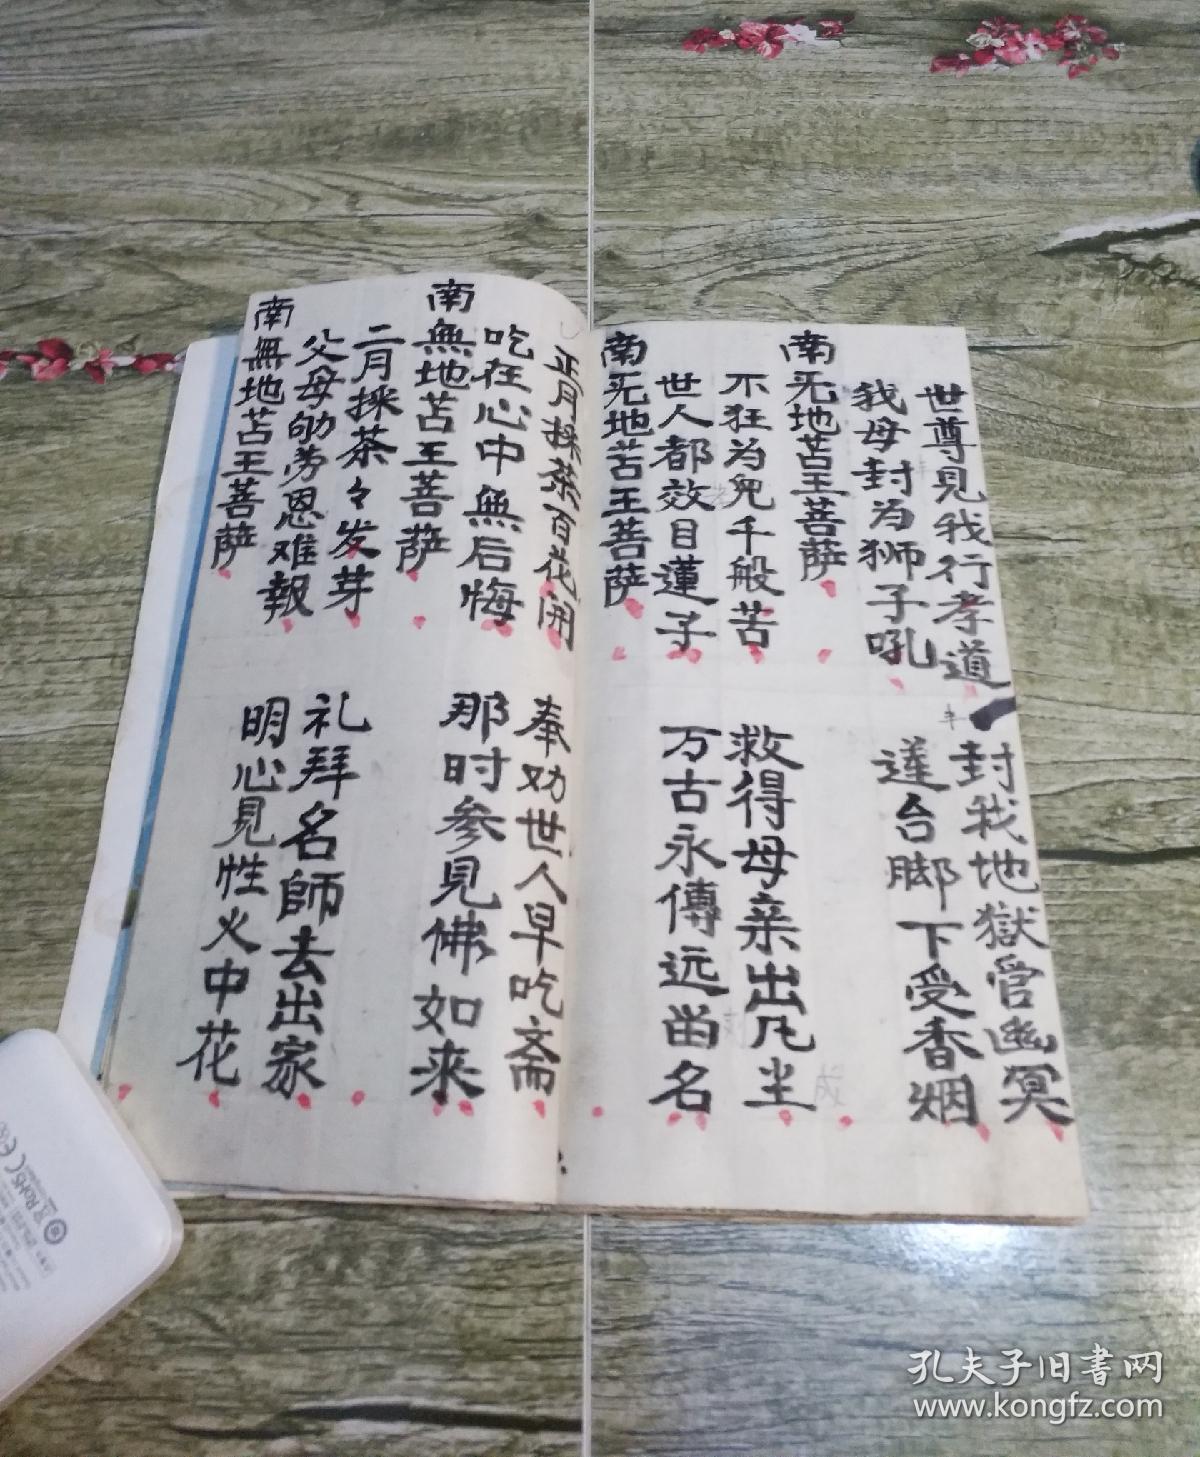 世尊見我行孝道
封我地獄官幽冥
我母封为狮子吼
蓮台脚下受香烟
南无地苦王菩萨
不狂为兒千般苦
救得母亲出凡尘
世人都效目蓮子
万古永傳远留名
南无地苦王菩萨
正月採茶百花開
奉劝世人早吃斋
吃在心中無后悔
那时参見佛如来
南無地苦王菩萨
二月採茶々发芽
礼拜名師去出家
父母劬劳恩难報
明心見性火中花
南無地苦王菩萨
孔夫子旧書网
www.kongfz.com
RoHS